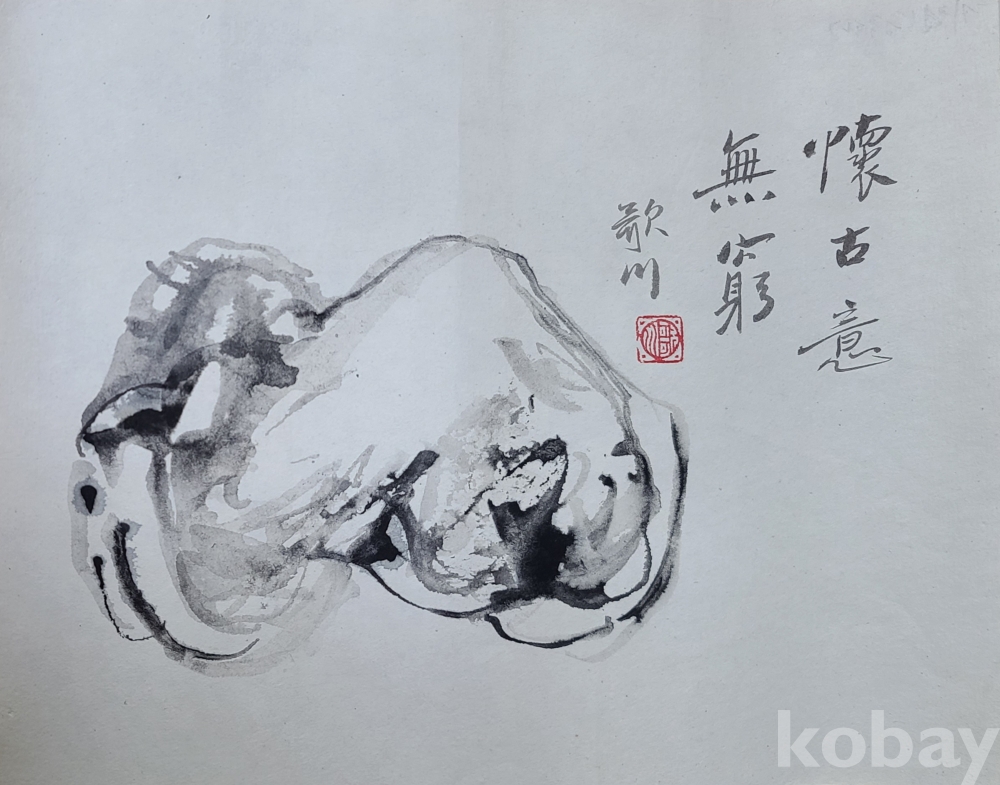 懷古意
無窮
歌川
kobay